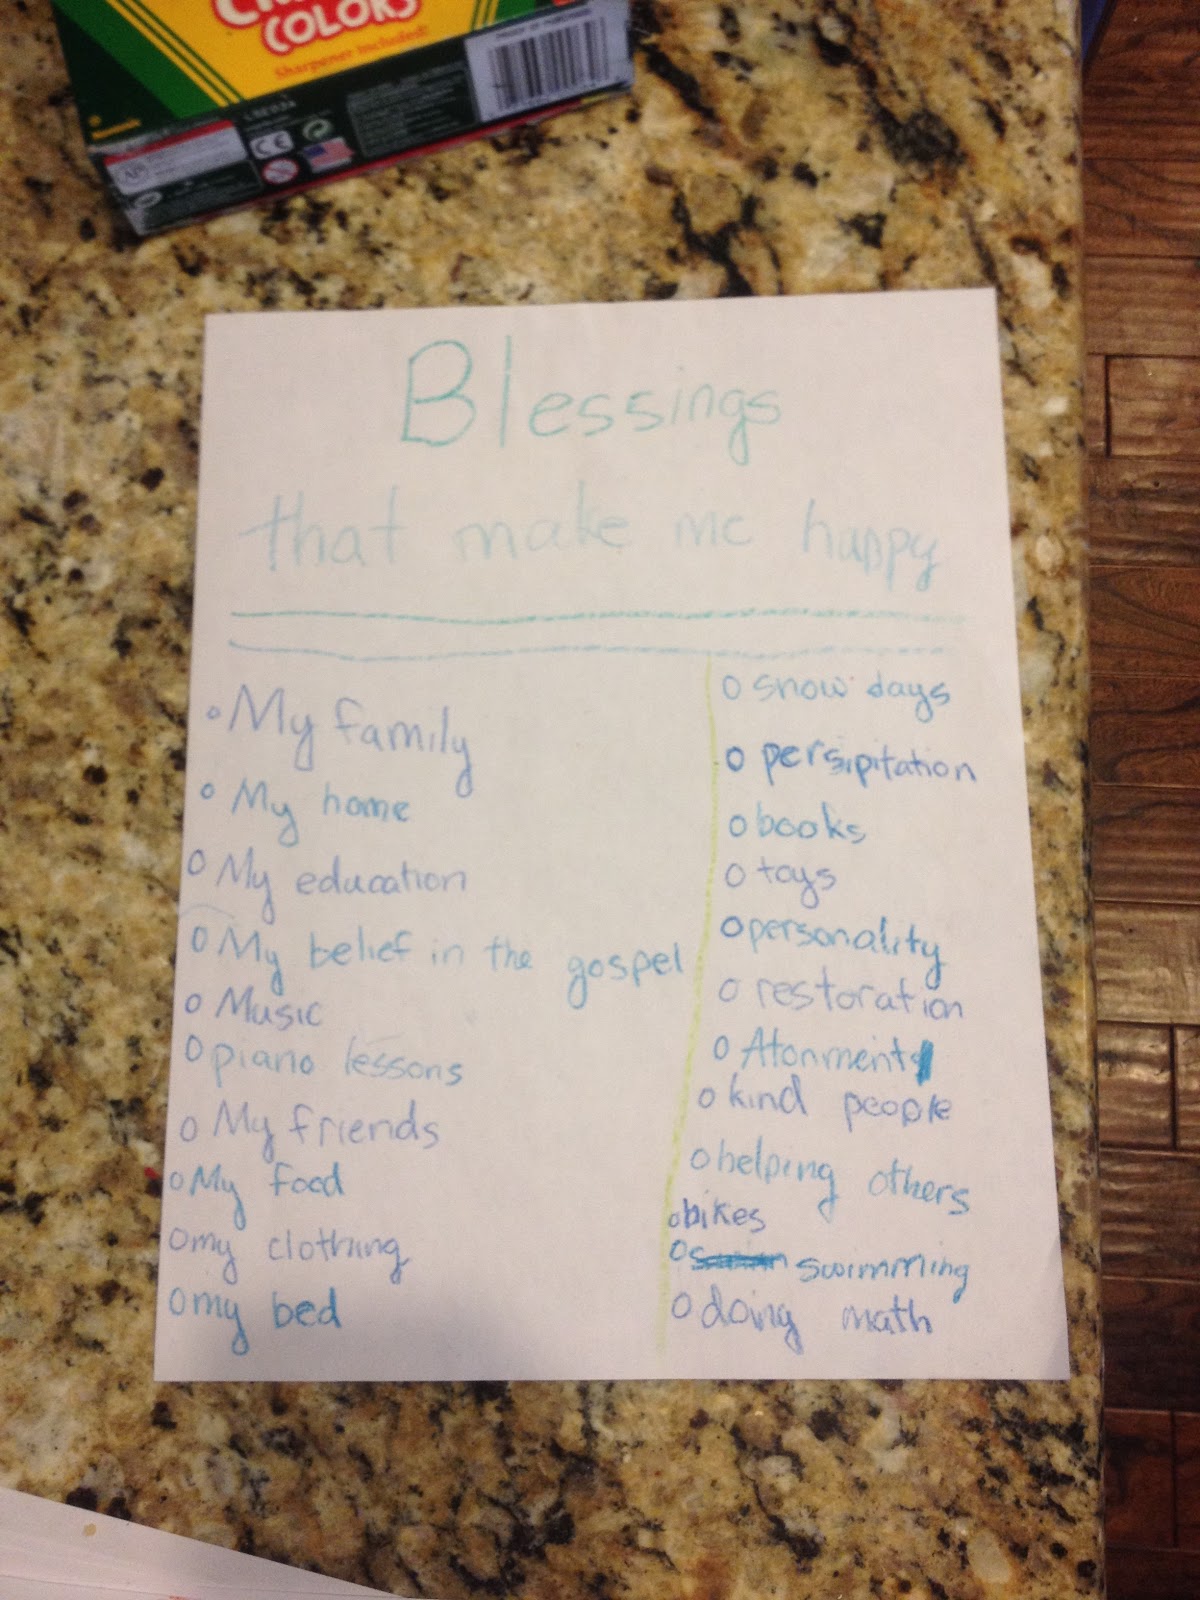 COLORS
Sharpener Included!
CE
Blessings
that make me happy
My family
My home
My education
My belief in the gospel
Music
piano lessons
My friends
My food
my clothing
my bed
snow days
persipitation
books
toys
personality
restoration
Atonment
kind people
helping others
bikes
swimming
doing math